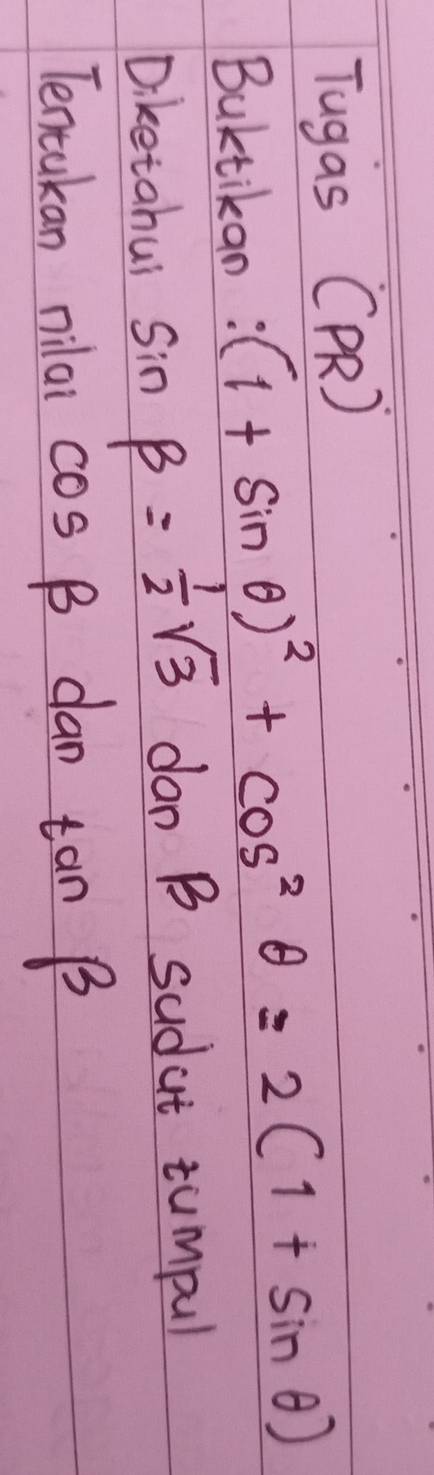 Tugas (PR)
Buktikan : (1 + Sin θ)² + cos² θ = 2 (1 + Sin θ)
Diketahui Sin β = ½√3 dan β sudut tumpul
Tentukan nilai cos β dan tan β